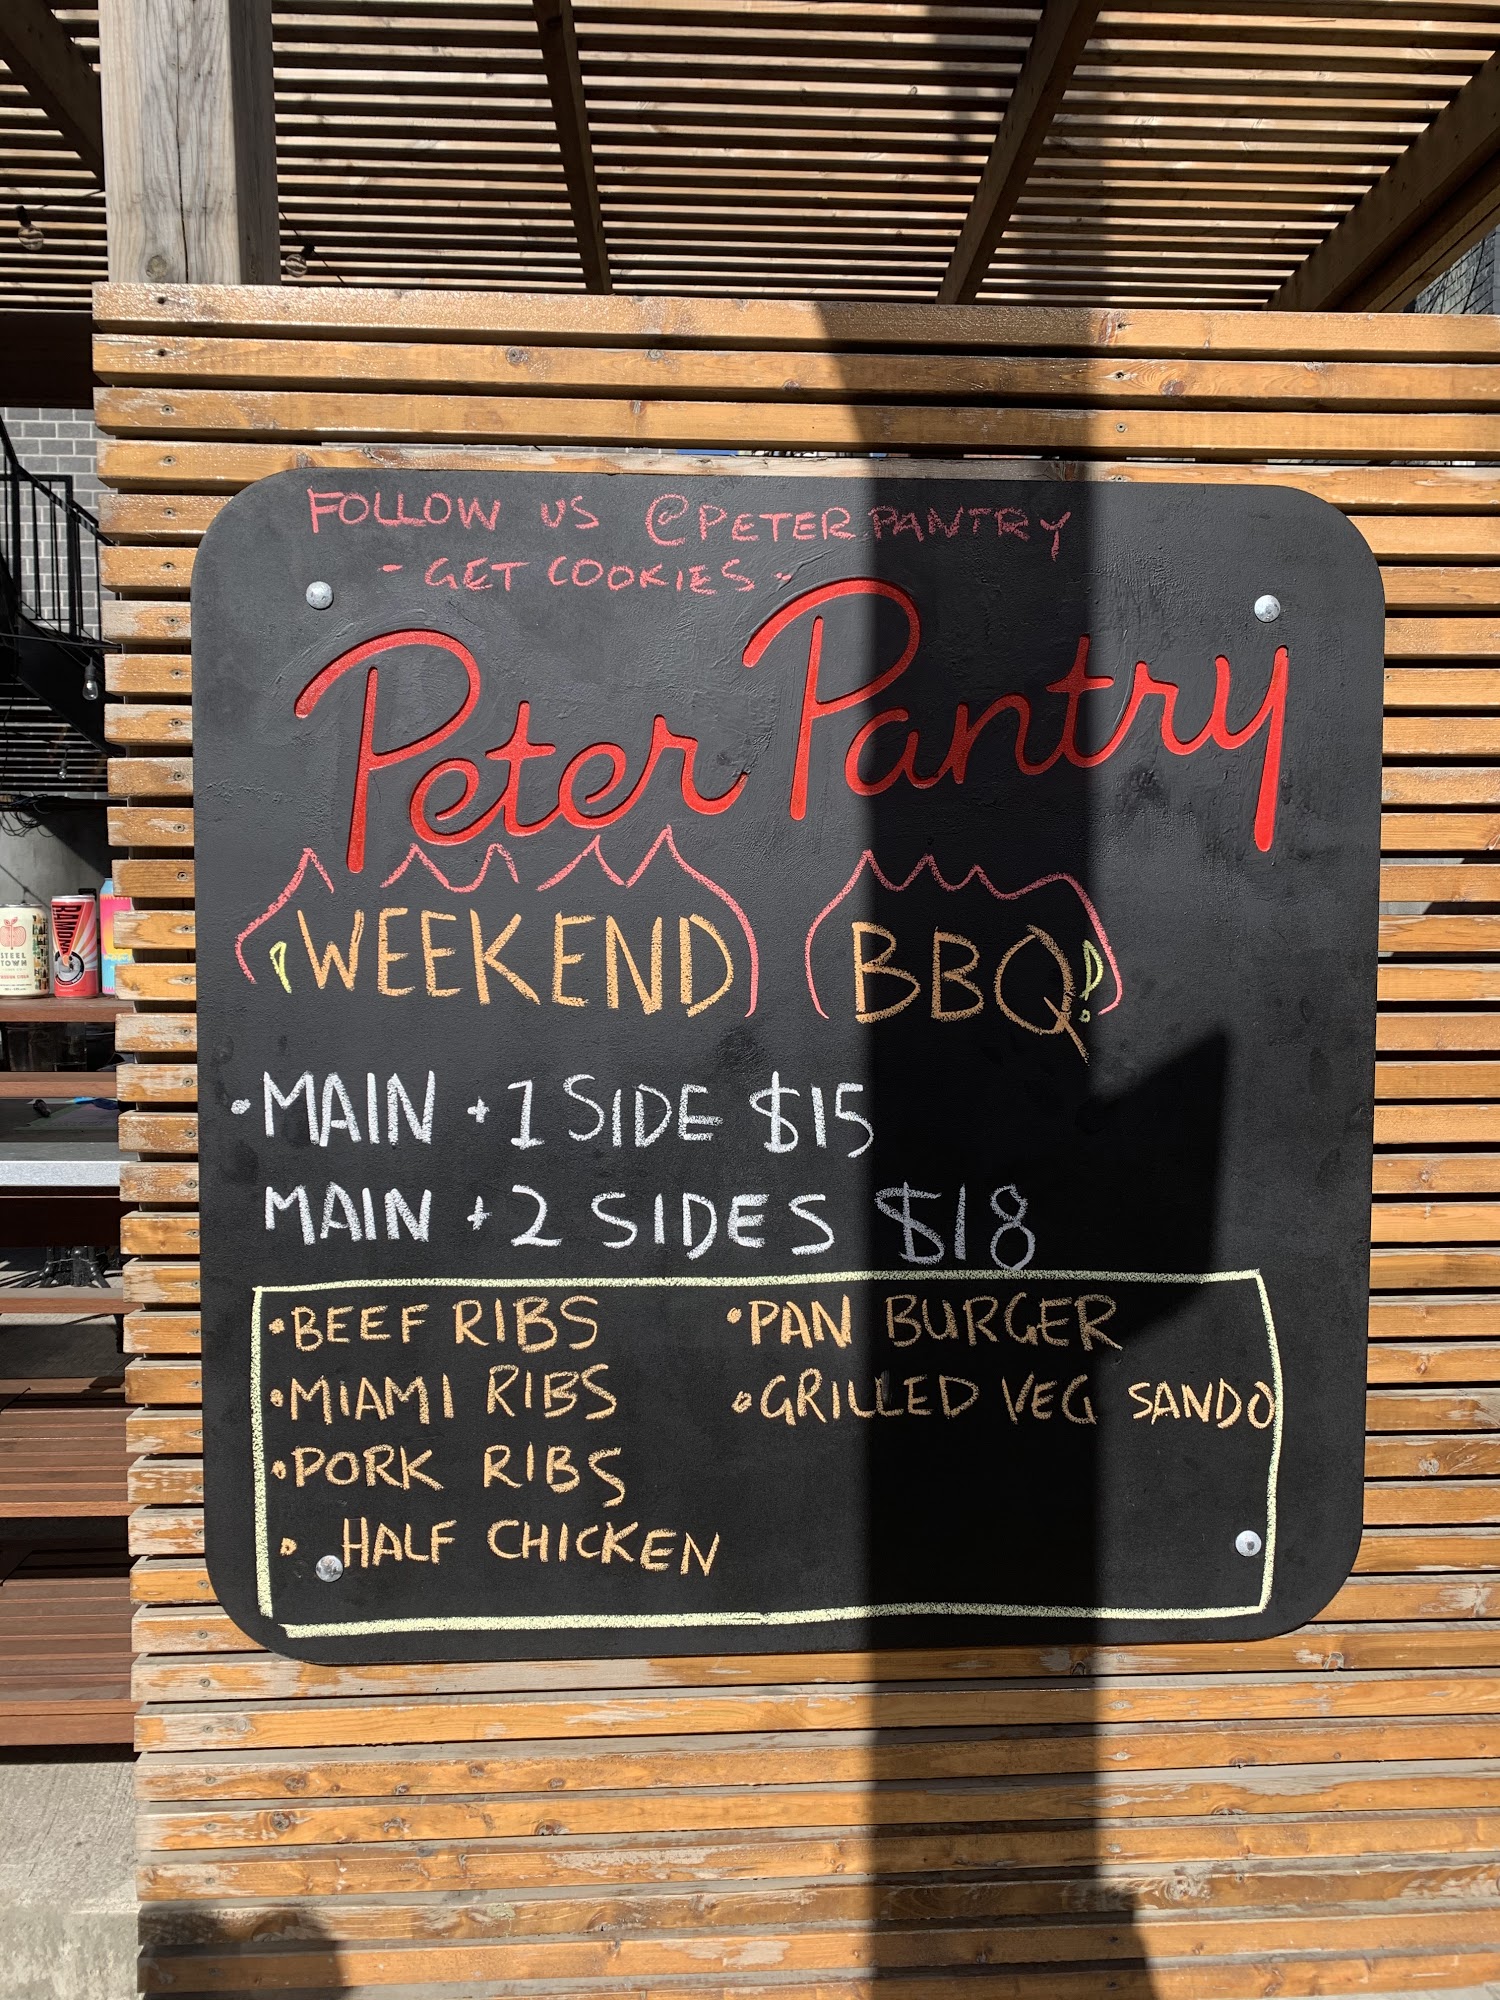 FOLLOW US @PETERPANTRY
- GET COOKIES -
Peter Pantry
¡WEEKEND BBQ!
•MAIN + 1 SIDE $15
MAIN + 2 SIDES $18
•BEEF RIBS
•MIAMI RIBS
•PORK RIBS
• HALF CHICKEN
•PAN BURGER
•GRILLED VEG SANDO
STEEL
TOWN
RAMONA